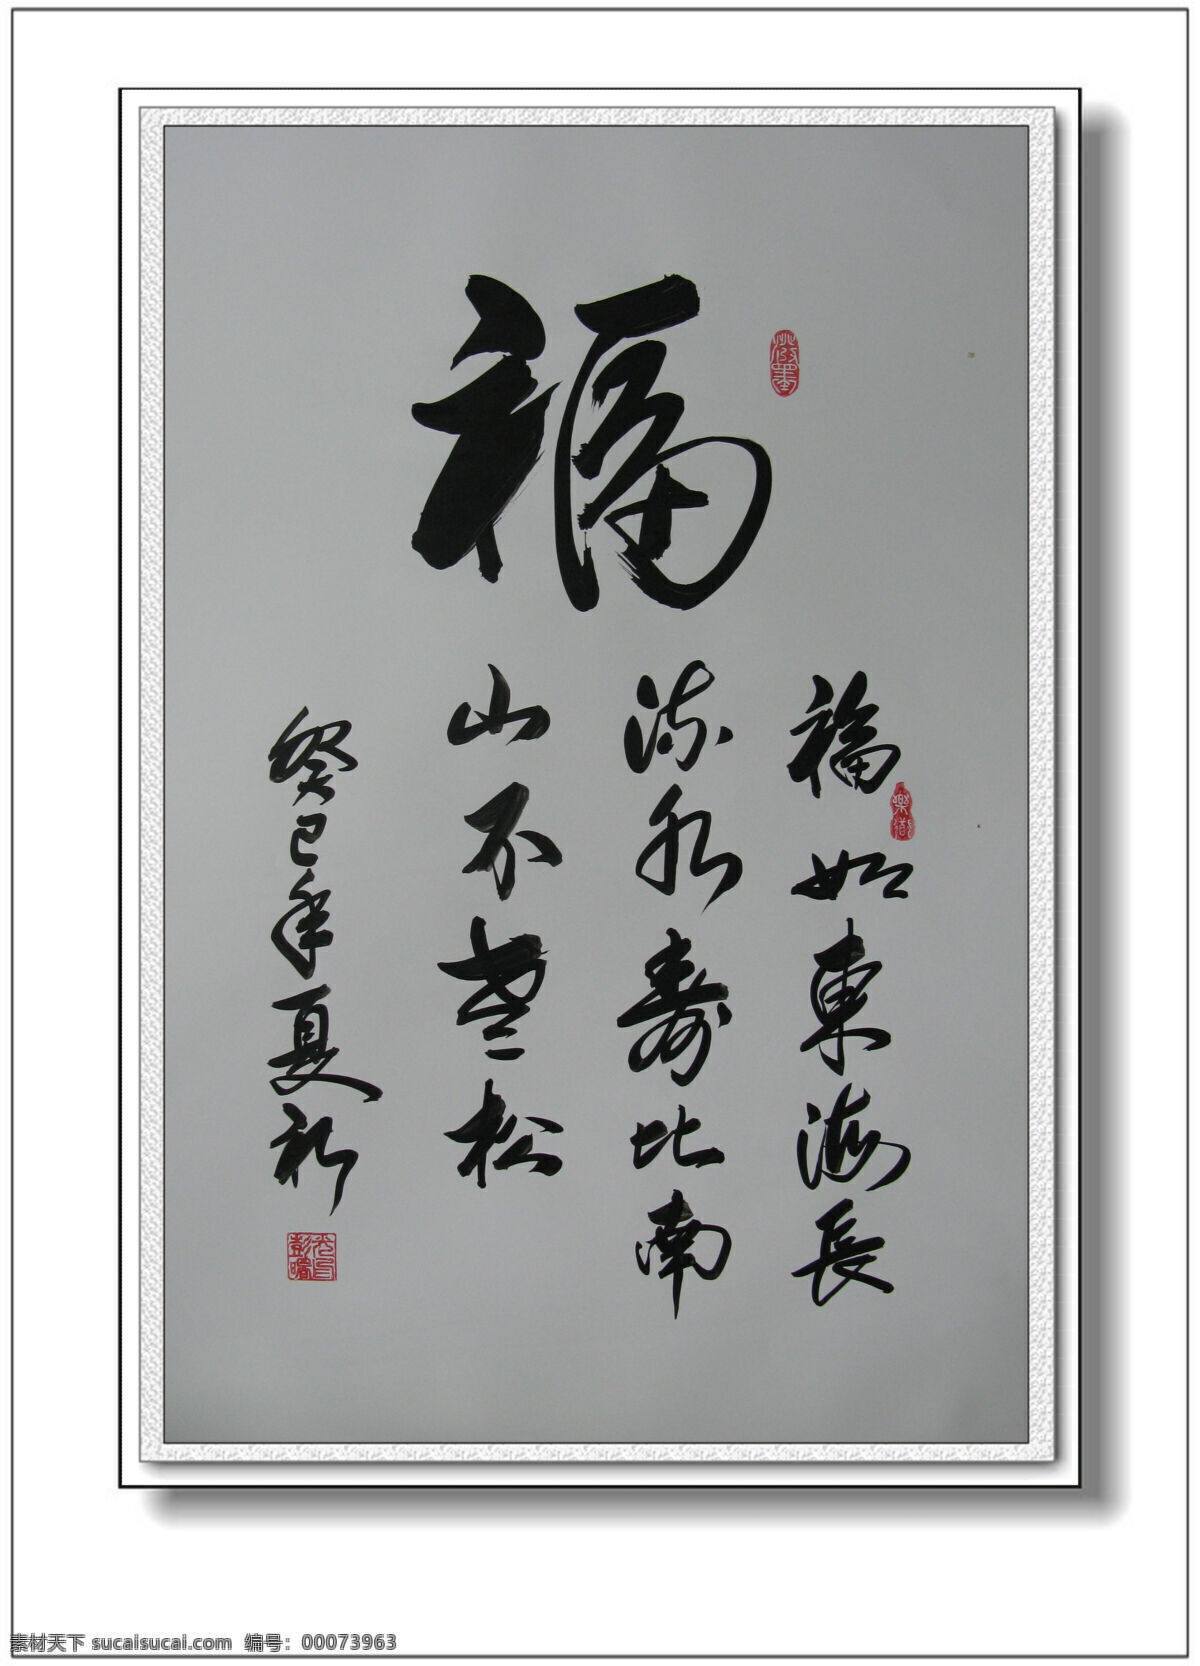 福
福如東海長
流水壽比南
山不老松
癸巳年夏
素材天下 sucaisucai.com 编号：00073963